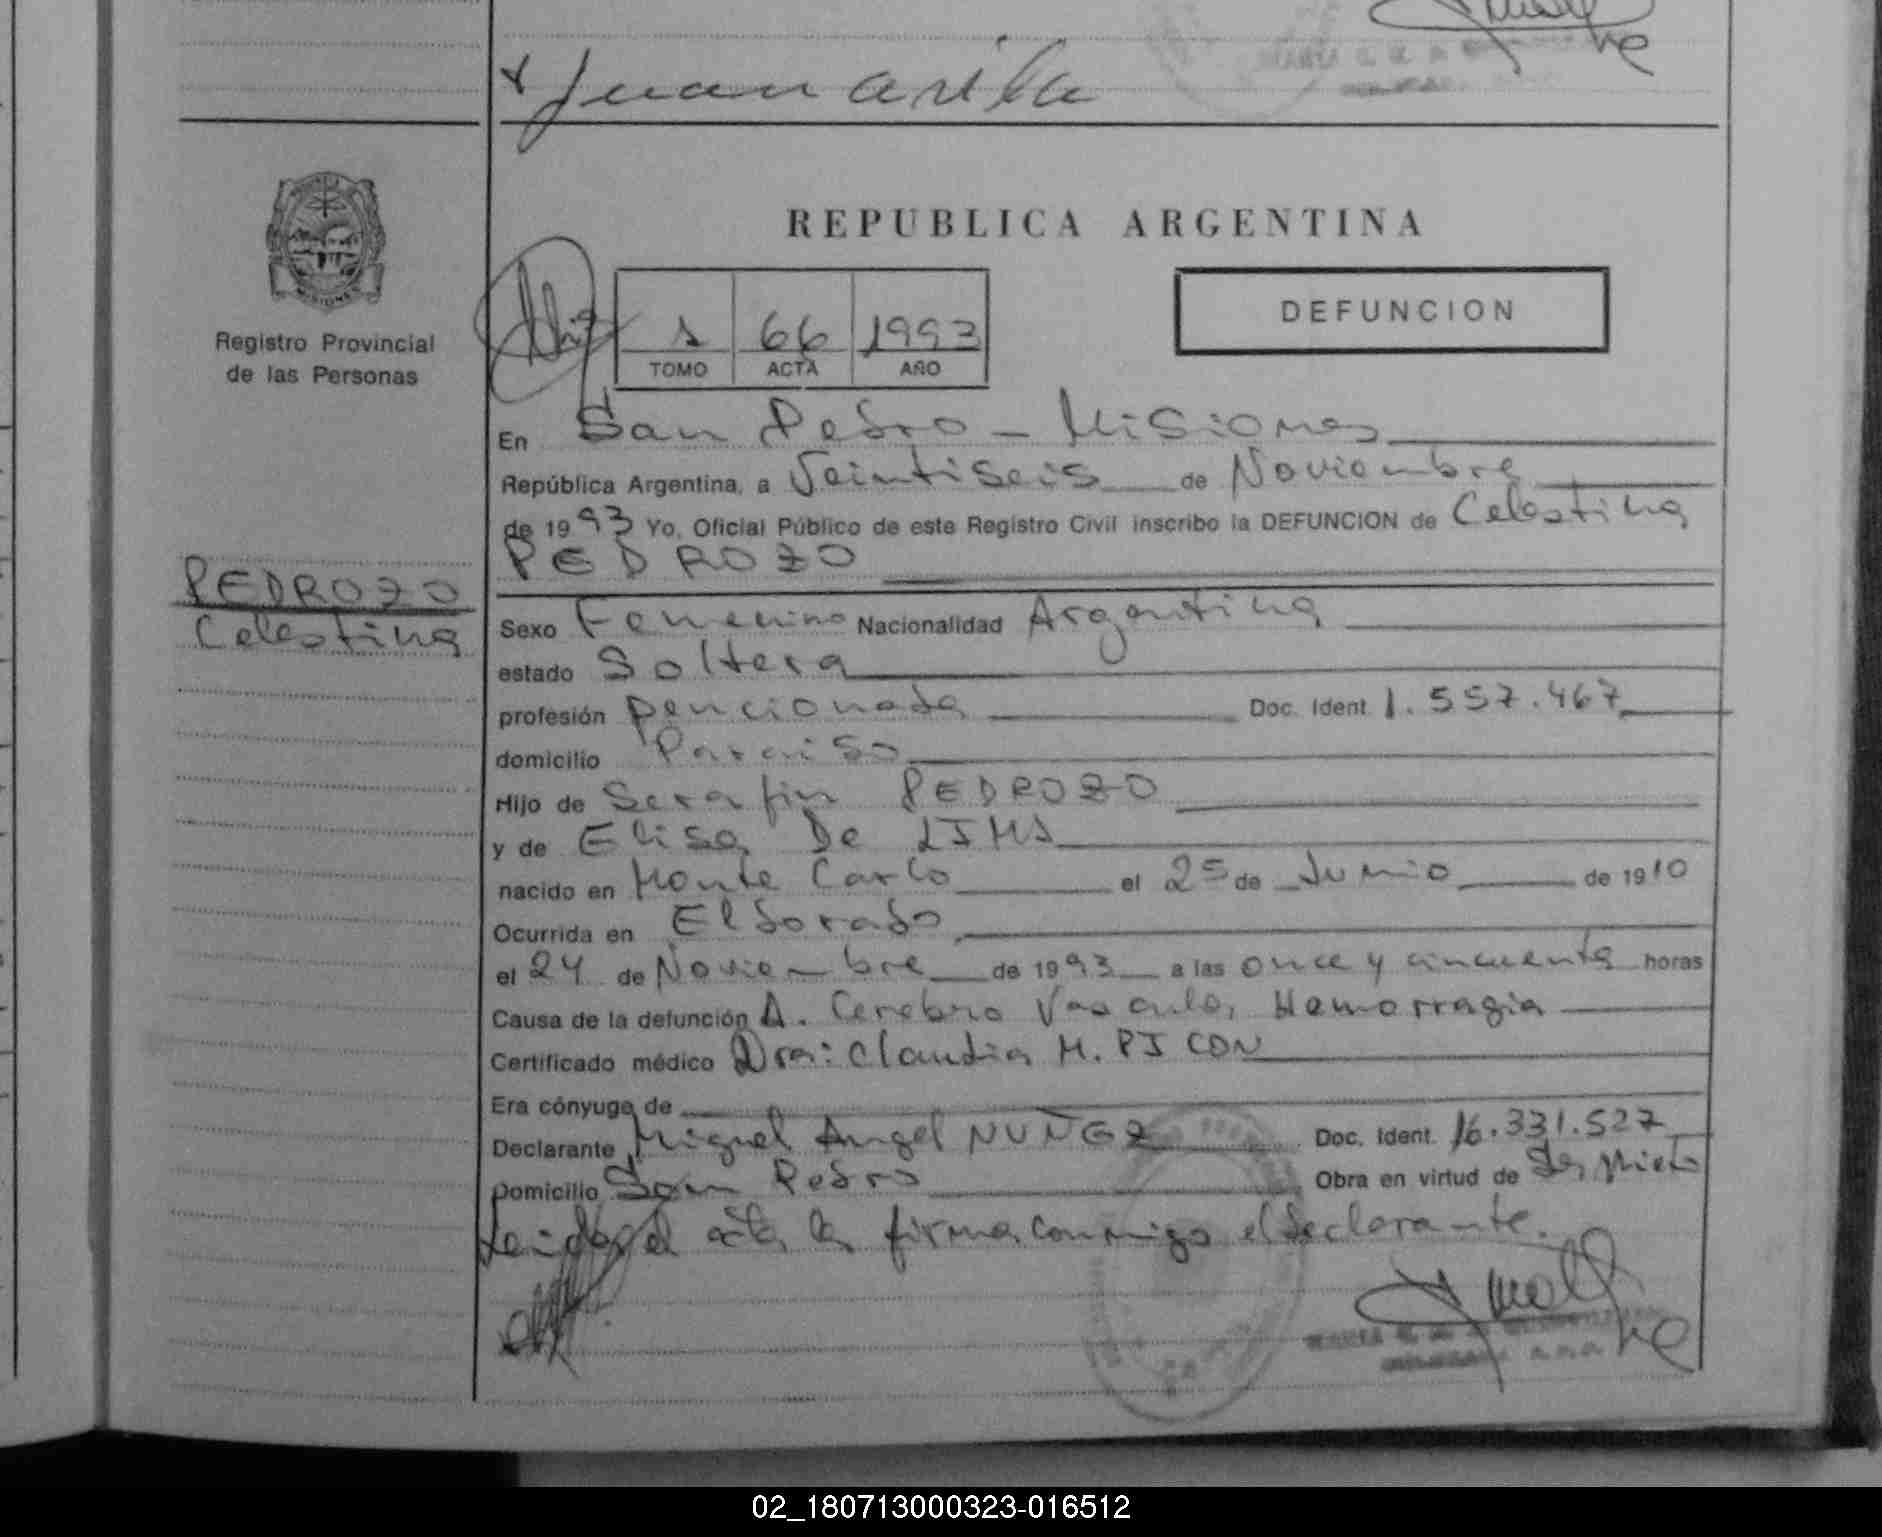 Juan avila
REPUBLICA ARGENTINA
DEFUNCION
Registro Provincial
de las Personas
1 66 1993
TOMO ACTA AÑO
En San Pedro - Misiones
República Argentina, a Veintiseis de Noviembre
de 1993 Yo, Oficial Público de este Registro Civil inscribo la DEFUNCION de Celestina
PEDROZO
PEDROZO
Celestina
Sexo Femenino Nacionalidad Argentina
estado Soltera
profesión pencionada Doc. Ident. 1.557.467
domicilio Paraiso
Hijo de Serafin PEDROZO
y de Elisa De LIMA
nacido en Monte Carlo el 25 de Junio de 1910
Ocurrida en Eldorado
el 24 de Noviembre de 1993 a las once y cincuenta horas
Causa de la defunción A. Cerebro Vascular Hemorragia
Certificado médico Dra: Claudia M. PICON
Era cónyuge de
Declarante Miguel Angel NUÑEZ Doc. Ident. 16.331.527
Domicilio San Pedro Obra en virtud de ser Nieto
Leida el acta la firma conmigo el declarante.
02_180713000323-016512